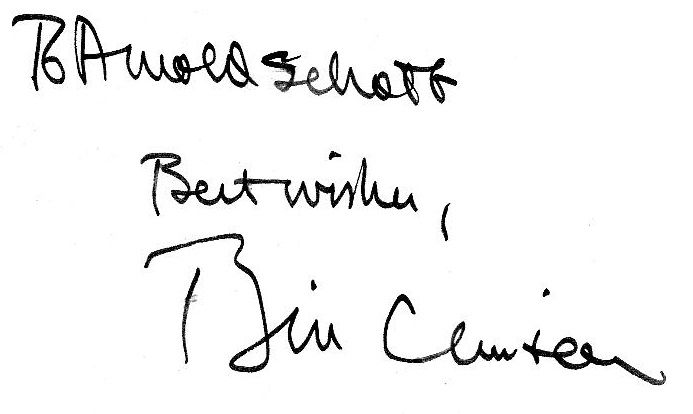 To Arnold Schott
Best wishes,
Bill Clinton